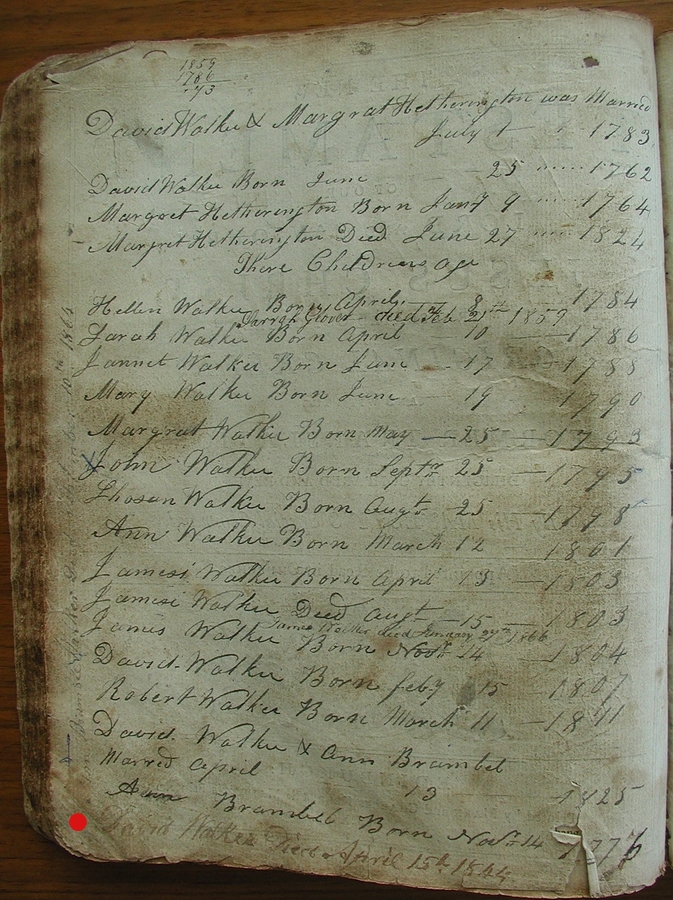 1859
1786
73
David Walker & Margrat Hetherington was Married
July 1 1783
David Walker Born June 25 1762
Margret Hetherington Born Jany 9 1764
Margret Hetherington Died June 27 1824
There Childrens age
Hellen Walker Born April 8 1784
Sarrah Glover died Feb 21th 1859
Sarah Walker Born April 10 1786
Jannet Walker Born June 17 1788
Mary Walker Born June 19 1790
Margrat Walker Born May 25 1793
John Walker Born Septr 25 1795
Thosan Walker Born Augt 25 1798
Ann Walker Born March 12 1801
James Walker Born April 13 1803
James Walker Deed Augt 15 1803
James Walker died January 27th 1866
James Walker Born Novr 14 1804
David Walker Born feby 15 1807
Robert Walker Born March 11 1811
David Walker & Ann Brambel
Marred April 13 1825
Ann Brambel Born Novr 14 177
David Walker Died April 15th 1864
10th 1864